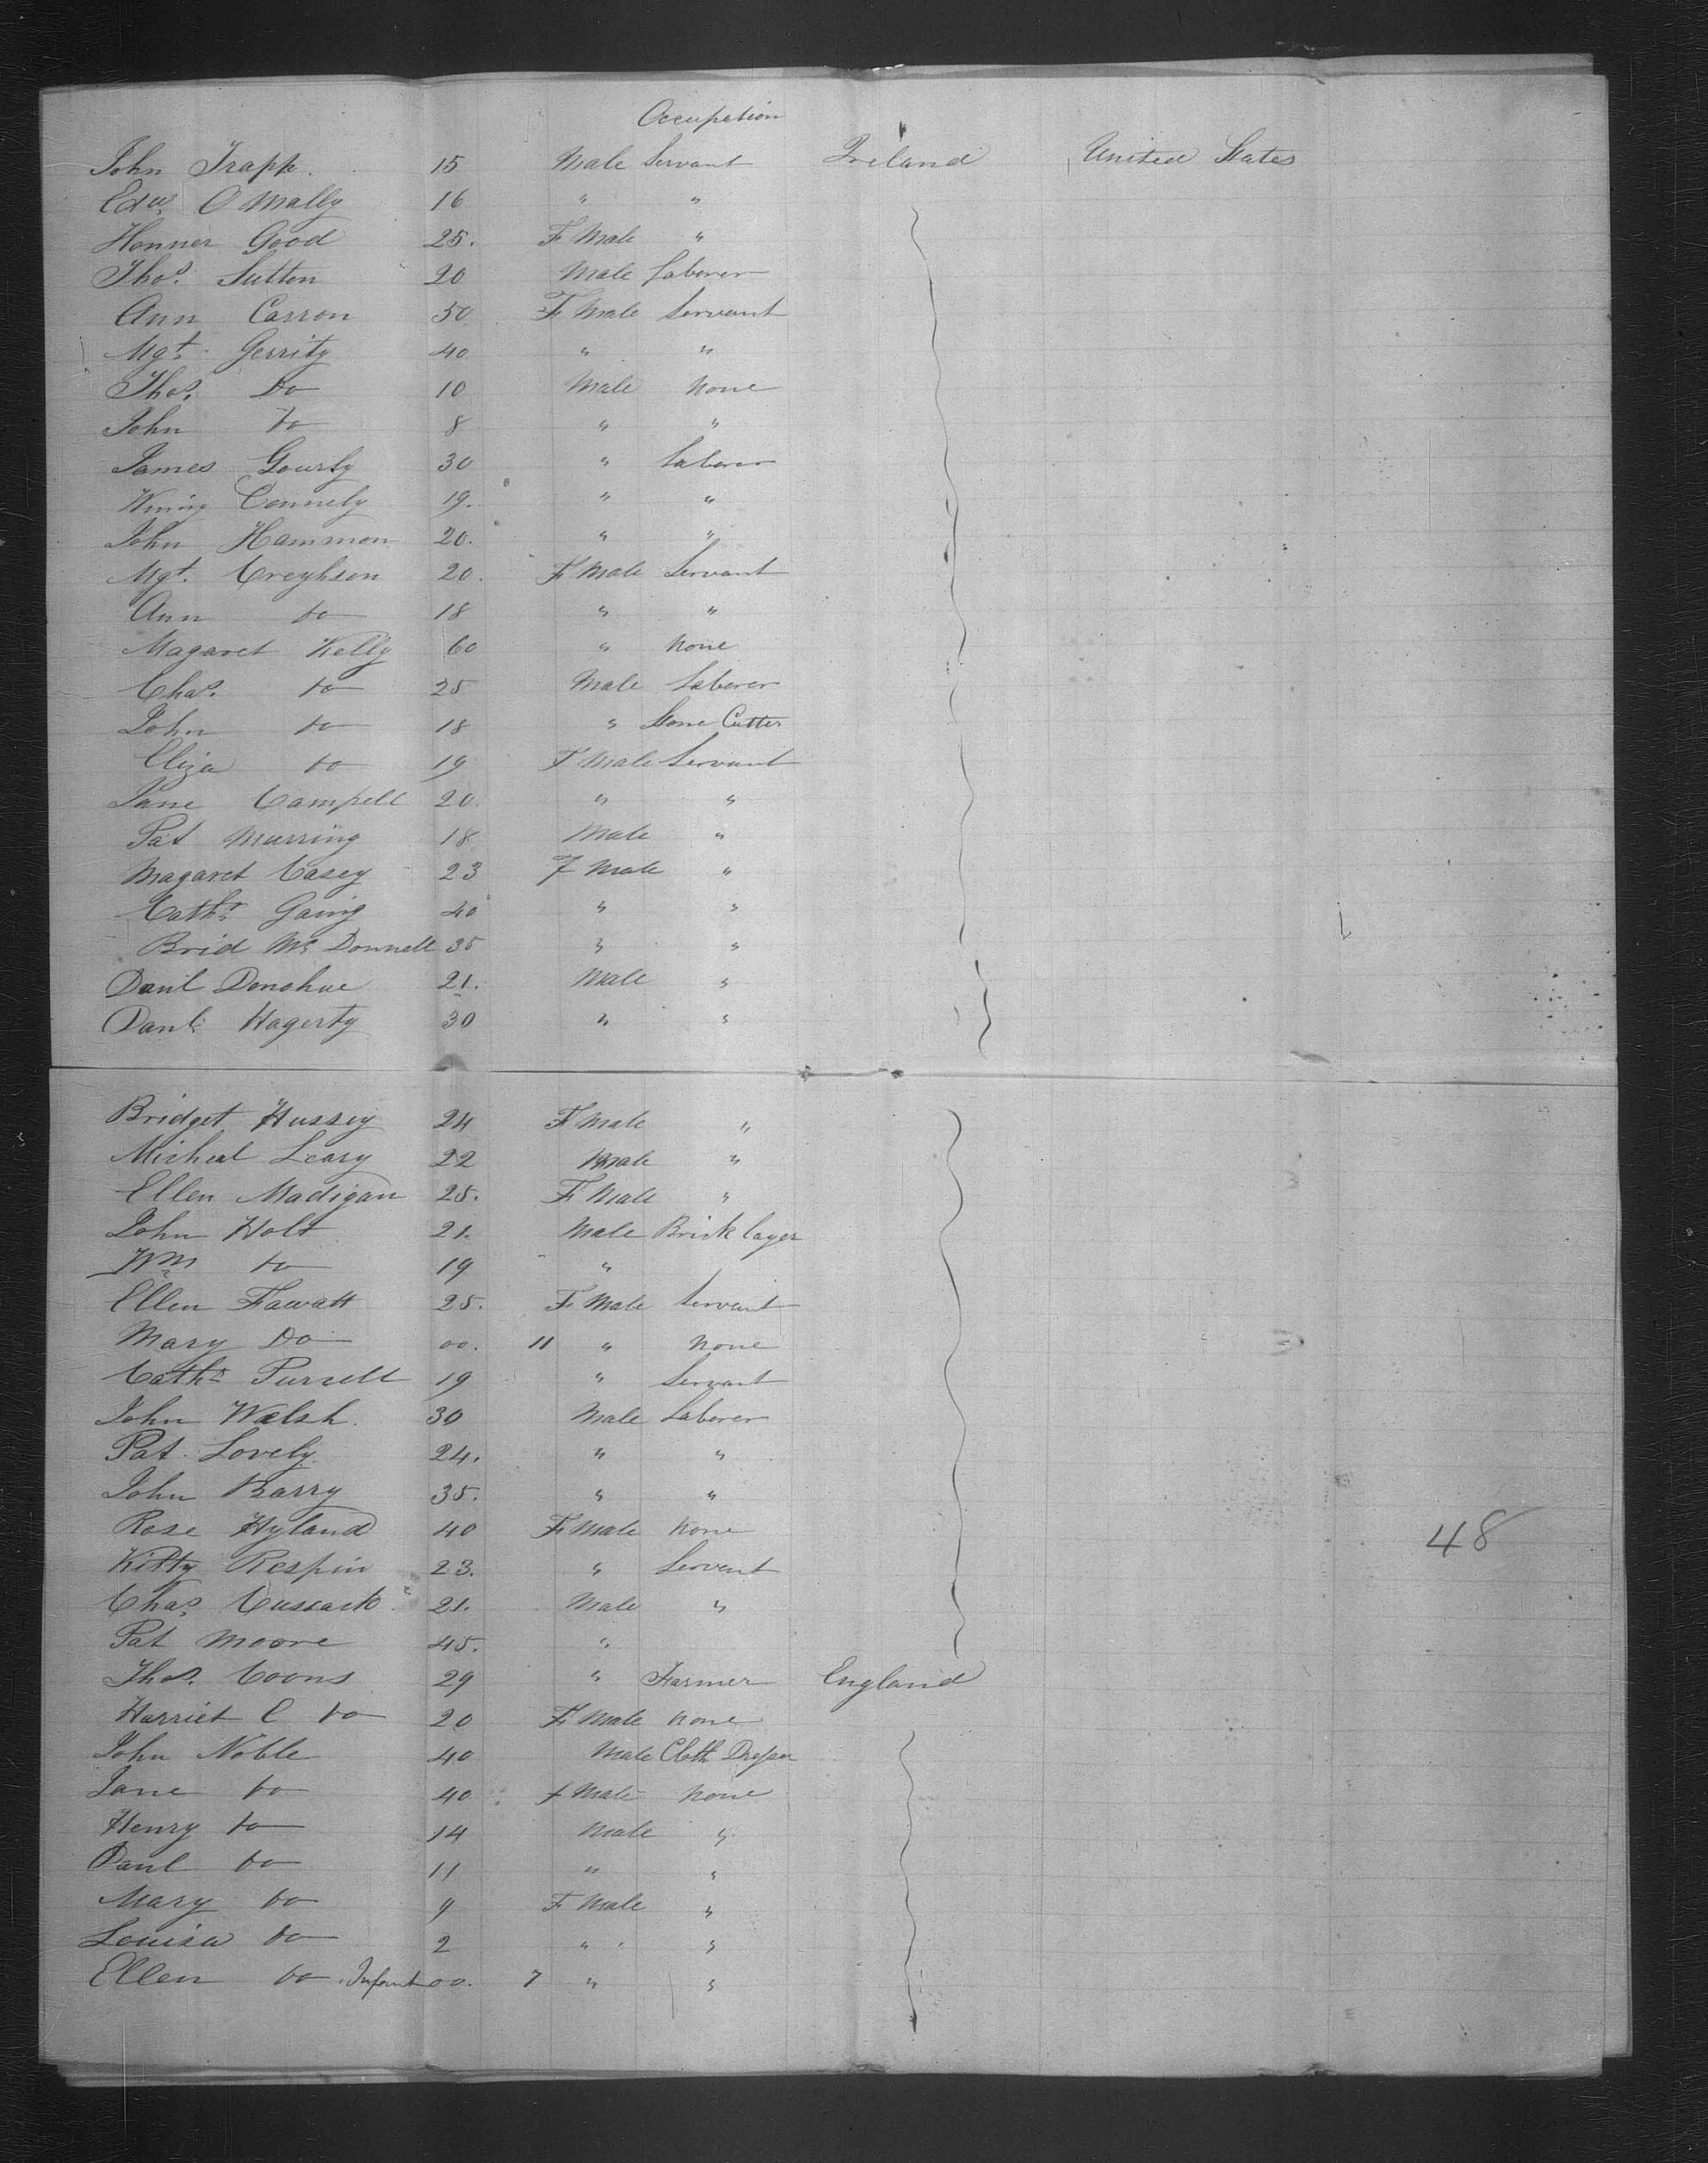 Occupation
John Trapp. 15 Male Servant Ireland United States
Edwd. O Mally 16 " "
Honner Good 25. F Male "
Thos. Sutton 20 Male Laborer
Ann Carron 50 F Male Servant
Mgt. Gerrity 40 " "
Thos. Do 10 Male None
John do 8 " "
James Gourly 30 " Laborer
Wining Connely 19. " "
John Hammon 20. " "
Mgt. Creyhson 20. F Male Servant
Ann do 18 " "
Magaret Kelly 60 " None
Chas. do 25 Male Laborer
John do 18 " Stone Cutter
Eliza do 19 F Male Servant
Jane Campell 20. " "
Pat Murring 18 Male "
Magaret Casey 23 F Male "
Cathr. Gaing 40 " "
Brid Mc Donnell 35 " "
Danl Donohue 21. Male "
Danl. Hagerty 30 " "
Bridget Hussey 24 F Male "
Micheal Leary 22 Male "
Ellen Madigan 25. F Male "
John Holt 21. Male Brick layer
Wm do 19 "
Ellen Fawatt 25. F Male Servant
Mary Do 00. 11 " None
Cathr Pursell 19 " Servant
John Walsh. 30 Male Laborer
Pat Lovely. 24. " "
John Barry 35. " "
Rose Hyland 40 F Male None
Kitty Respin 23. " Servant
Chas. Cussack 21. Male "
Pat Moore 45. "
Thos. Coons 29 " Farmer England
Harriet C do 20 F Male None
John Noble 40 Male Cloth Dresser
Jane do 40 F Male None
Henry do 14 Male "
Danl do 11 " "
Mary do 9 F Male "
Louisa do 2 " "
Ellen do Infant 00. 7 " "
48